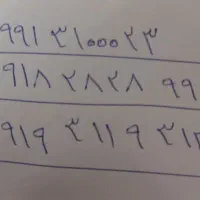 ۹۹۱ ۳۱۰۰۰۲۳
۹۱۸ ۲۸۲۸ ۹۹
۹۱۹ ۳۱۱۹ ۳۱